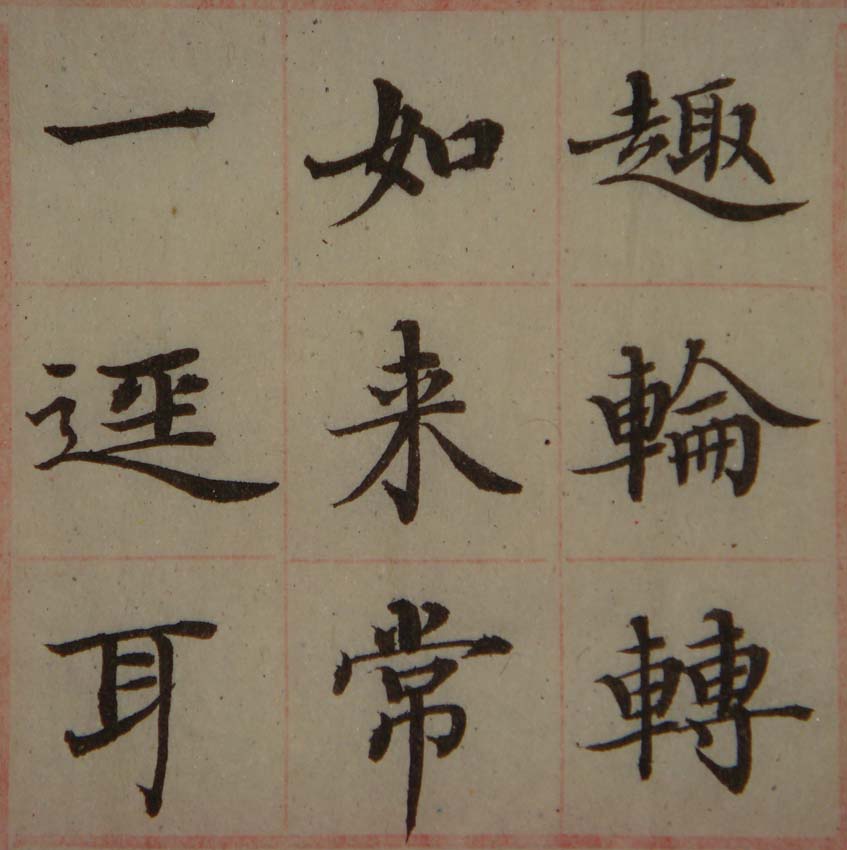 趣輪轉
如来常
一逕耳